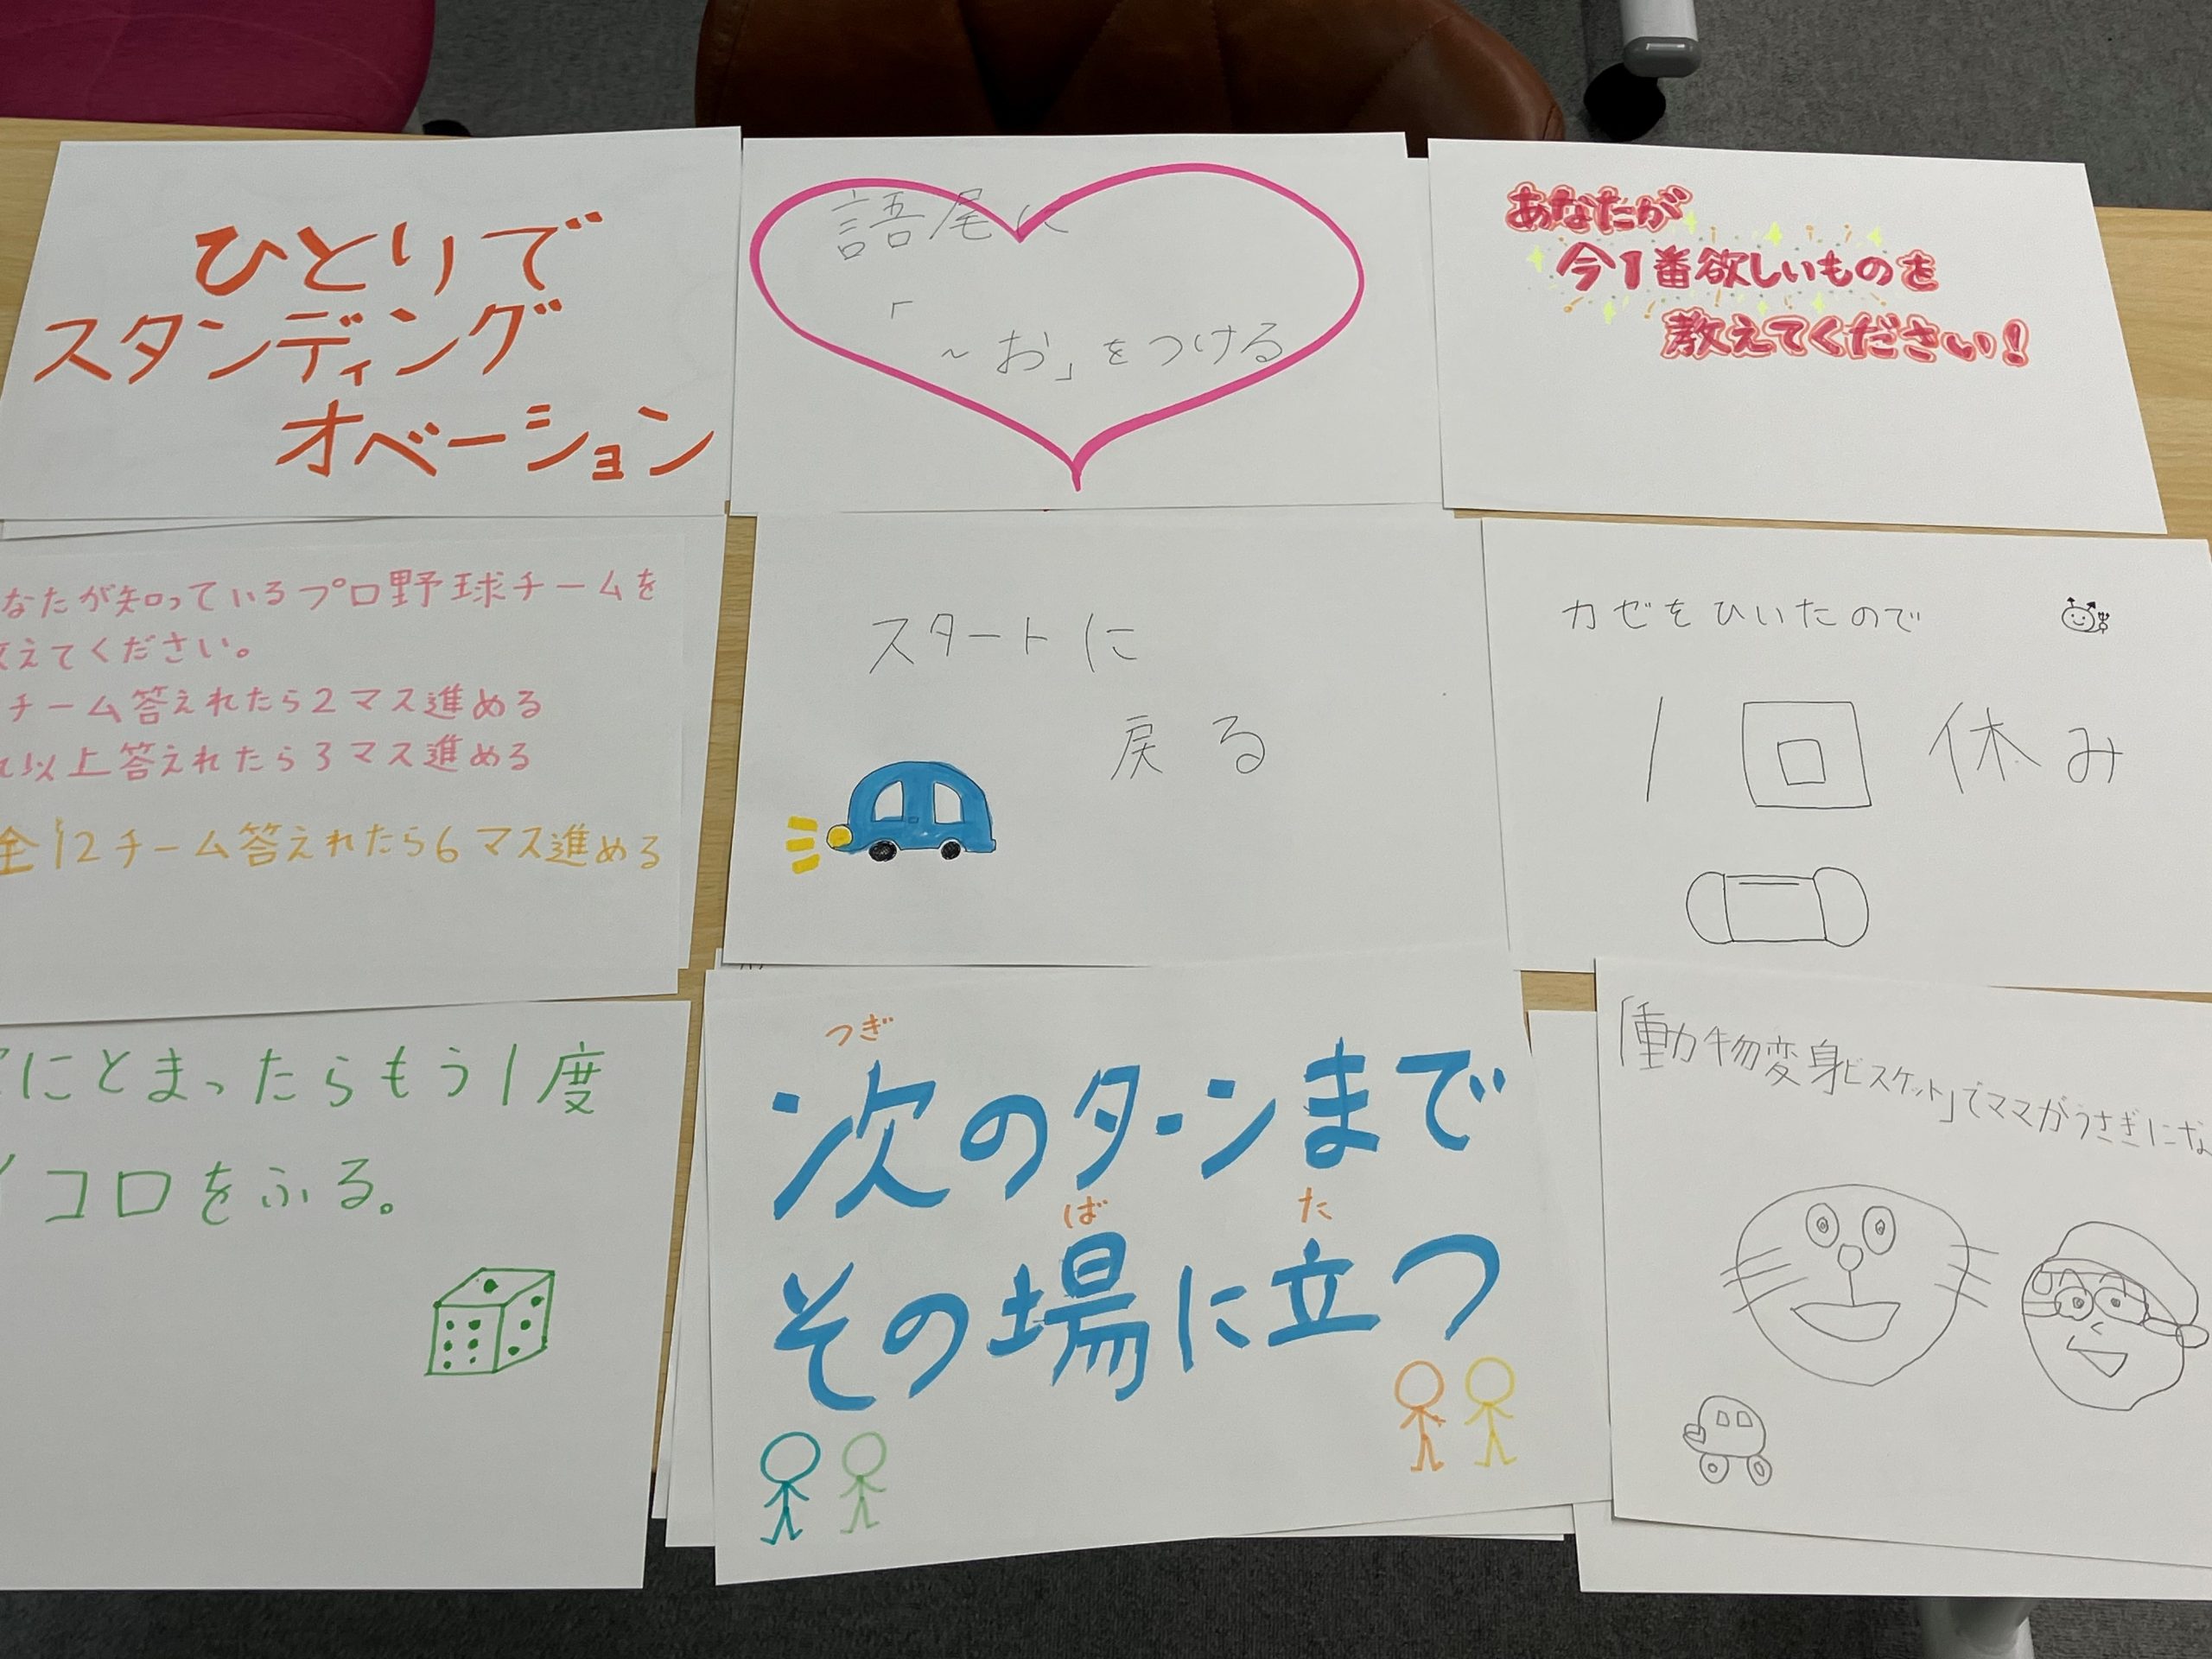 ひとりで
スタンディング
オベーション
語尾に
「
～お」をつける
あなたが
今1番欲しいものを
教えてください!
なたが知っているプロ野球チームを
えてください。
チーム答えれたら2マス進める
以上答えれたら3マス進める
全12チーム答えれたら6マス進める
スタートに
戻る
カゼをひいたので
1回休み
にとまったらもう1度
コロをふる。
つぎ
次のターンまで
ば た
その場に立つ
「動物変身ビスケット」でママがうさぎにな